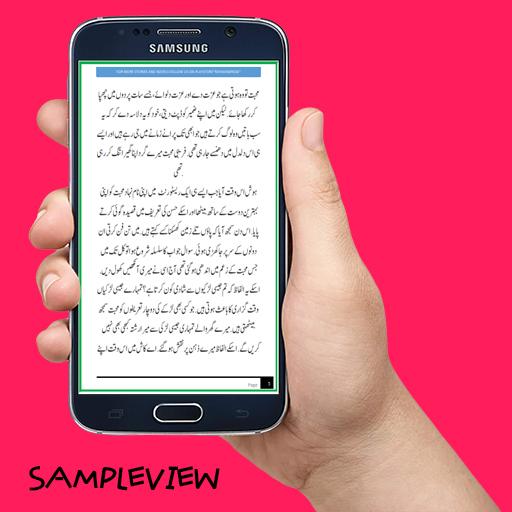 SAMSUNG
محبت تو وہ ہوتی ہے جو عزت دے اور عزت دلوائے، جسے سات پردوں میں چھپا
کر رکھا جائے۔ لیکن میں اپنے ضمیر کو ڈپٹ دیتی، خود کو یہ دلاسہ دے کر کہ یہ
سب باتیں وہ لوگ کرتے ہیں جو ابھی تک پرانے زمانے میں جی رہے ہیں اور ایسے
ہی اس دلدل میں دھنسے جا رہی تھی۔ فریبی محبت میرے گرد اپنا گھیرا تنگ کر رہی
تھی۔
ہوش اس وقت آیا جب ایسے ہی ایک ریسٹورنٹ میں اپنی نام نہاد محبت کو اپنی
بہترین دوست کے ساتھ بیٹھا اور اسکے حسن کی تعریف میں قصیدہ گوئی کرتے
پایا۔ اس دن سمجھ آیا کہ پاؤں تلے زمین کھسکنا کسے کہتے ہیں۔ میں تن فن کرتی ان
دونوں کے سر پر جا کھڑی ہوئی۔ سوال جواب کا سلسلہ شروع ہوا تو کل تک میں
جس محبت کے زعم میں اندھی ہو گئی تھی آج اسی نے میری آنکھیں کھول دیں۔
اسکے یہ الفاظ کہ تم جیسی لڑکیوں سے شادی کون کرتا ہے؟ تمہارے جیسی لڑکیاں
وقت گزاری کا باعث ہوتی ہیں۔ جو کسی بھی لڑکے کی دو چار تعریفوں کو محبت سمجھ
بیٹھتی ہیں۔ میرے گھر والے تمہاری جیسی لڑکی سے میرا رشتہ کبھی بھی نہیں
کریں گے۔ اسکے الفاظ میرے ذہن پر نقش ہو گئے۔ اے کاش میں اس وقت اپنے
Page 1
SAMPLEVIEW